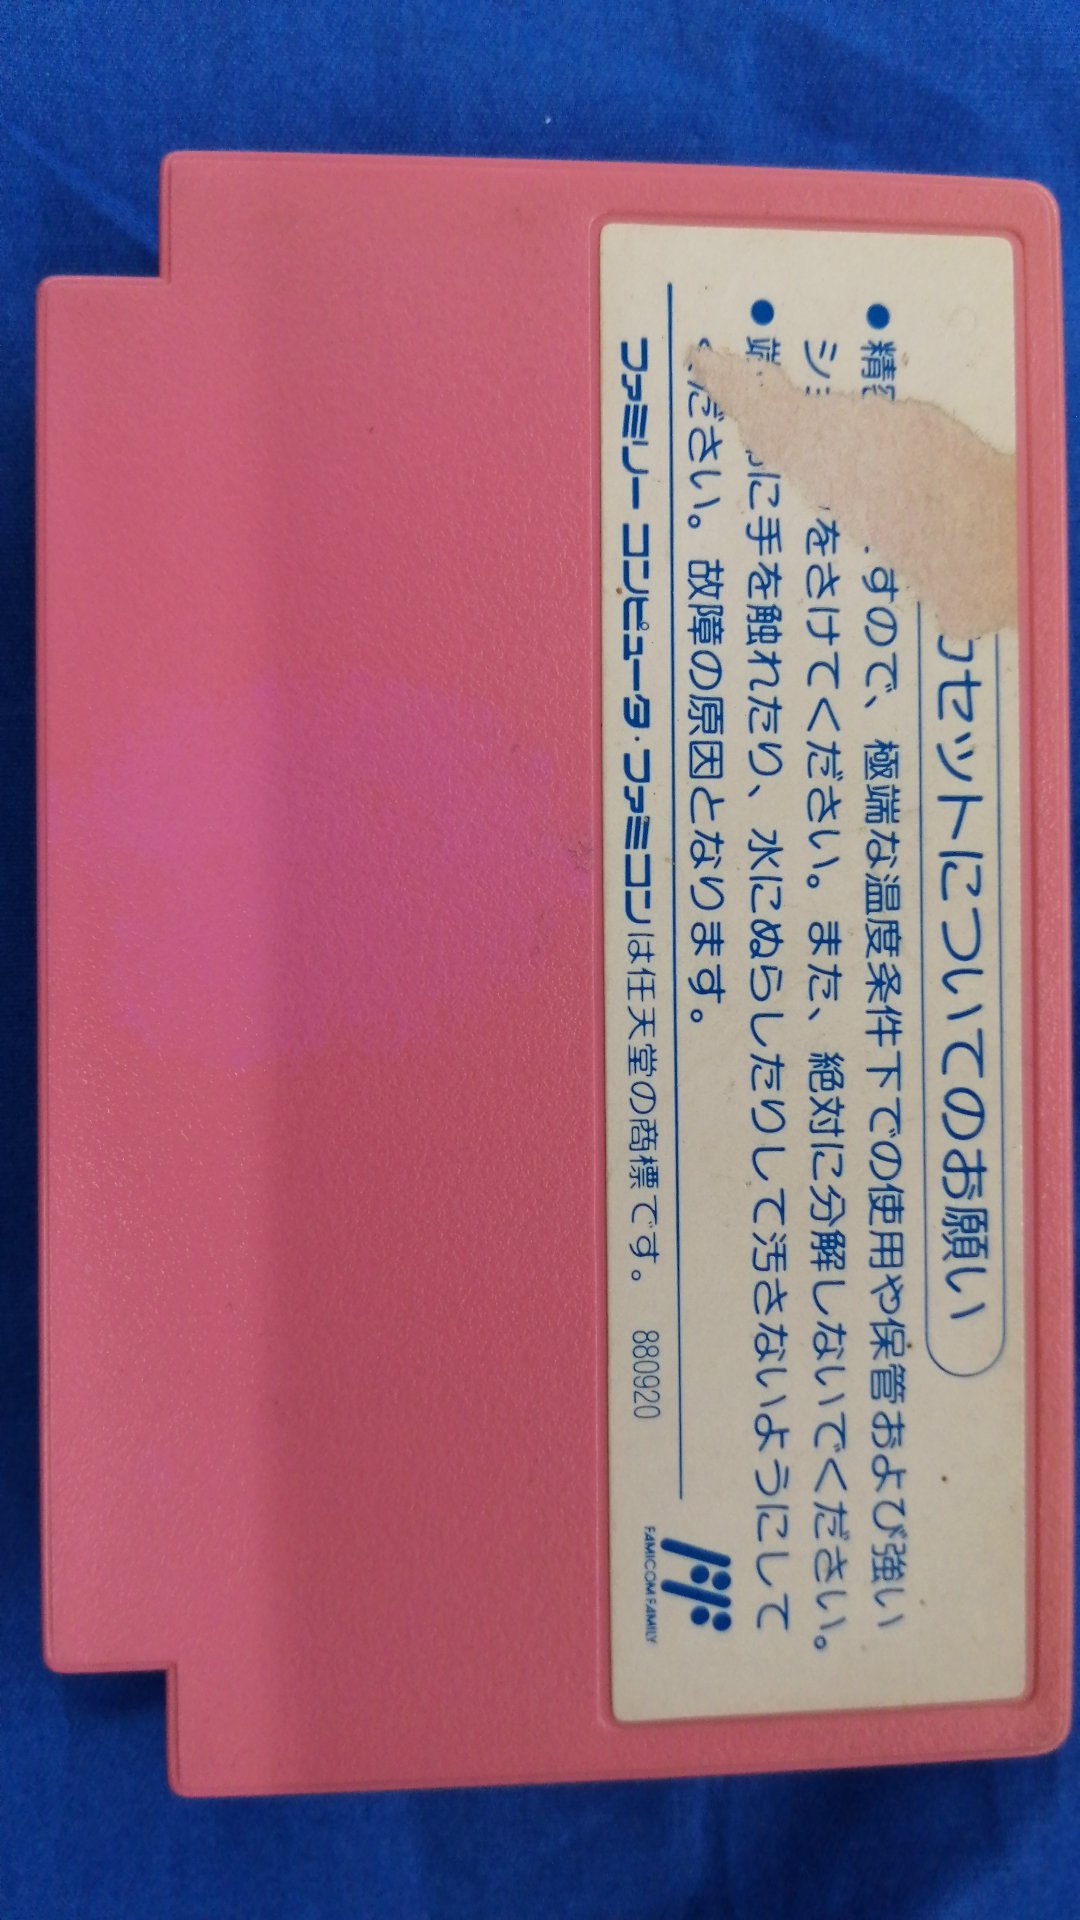 カセットについてのお願い
●精密 すので、極端な温度条件下での使用や保管および強い
ショ をさけてください。また、絶対に分解しないでください。
●端 に手を触れたり、水にぬらしたりして汚さないようにして
ください。故障の原因となります。
ファミリーコンピュータ・ファミコンは任天堂の商標です。 880920
FAMICOM FAMILY